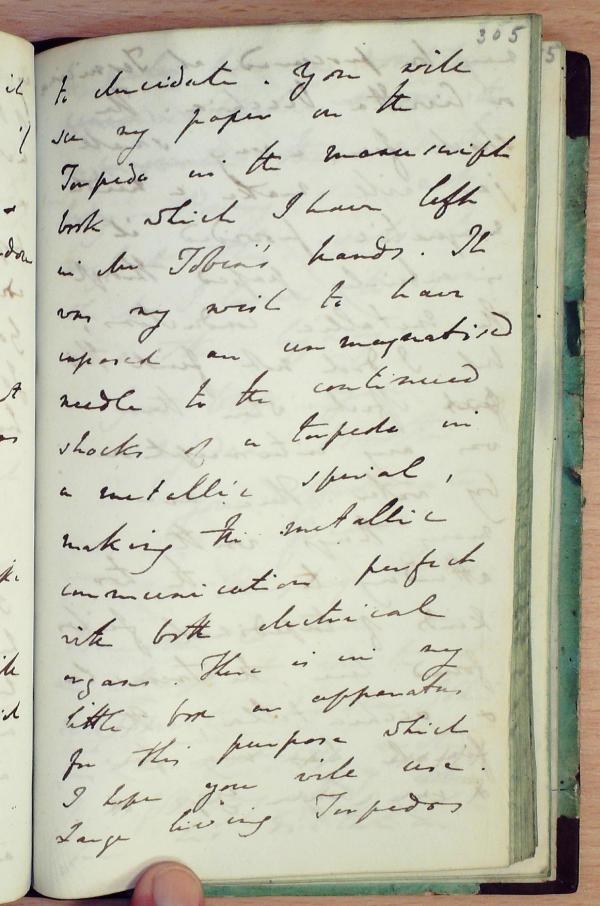 305
to elucidate. You will
see my paper on the
Torpedo in the manuscript
book which I have left
in Dr Tobin's hands. It
was my wish to have
exposed an unmagnatised
needle to the continued
shocks of a torpedo in
a metallic spiral,
making the metallic
communication perfect
with both electrical
organs. There is in my
little box an apparatus
for this purpose which
I hope you will use.
Large living Torpedos